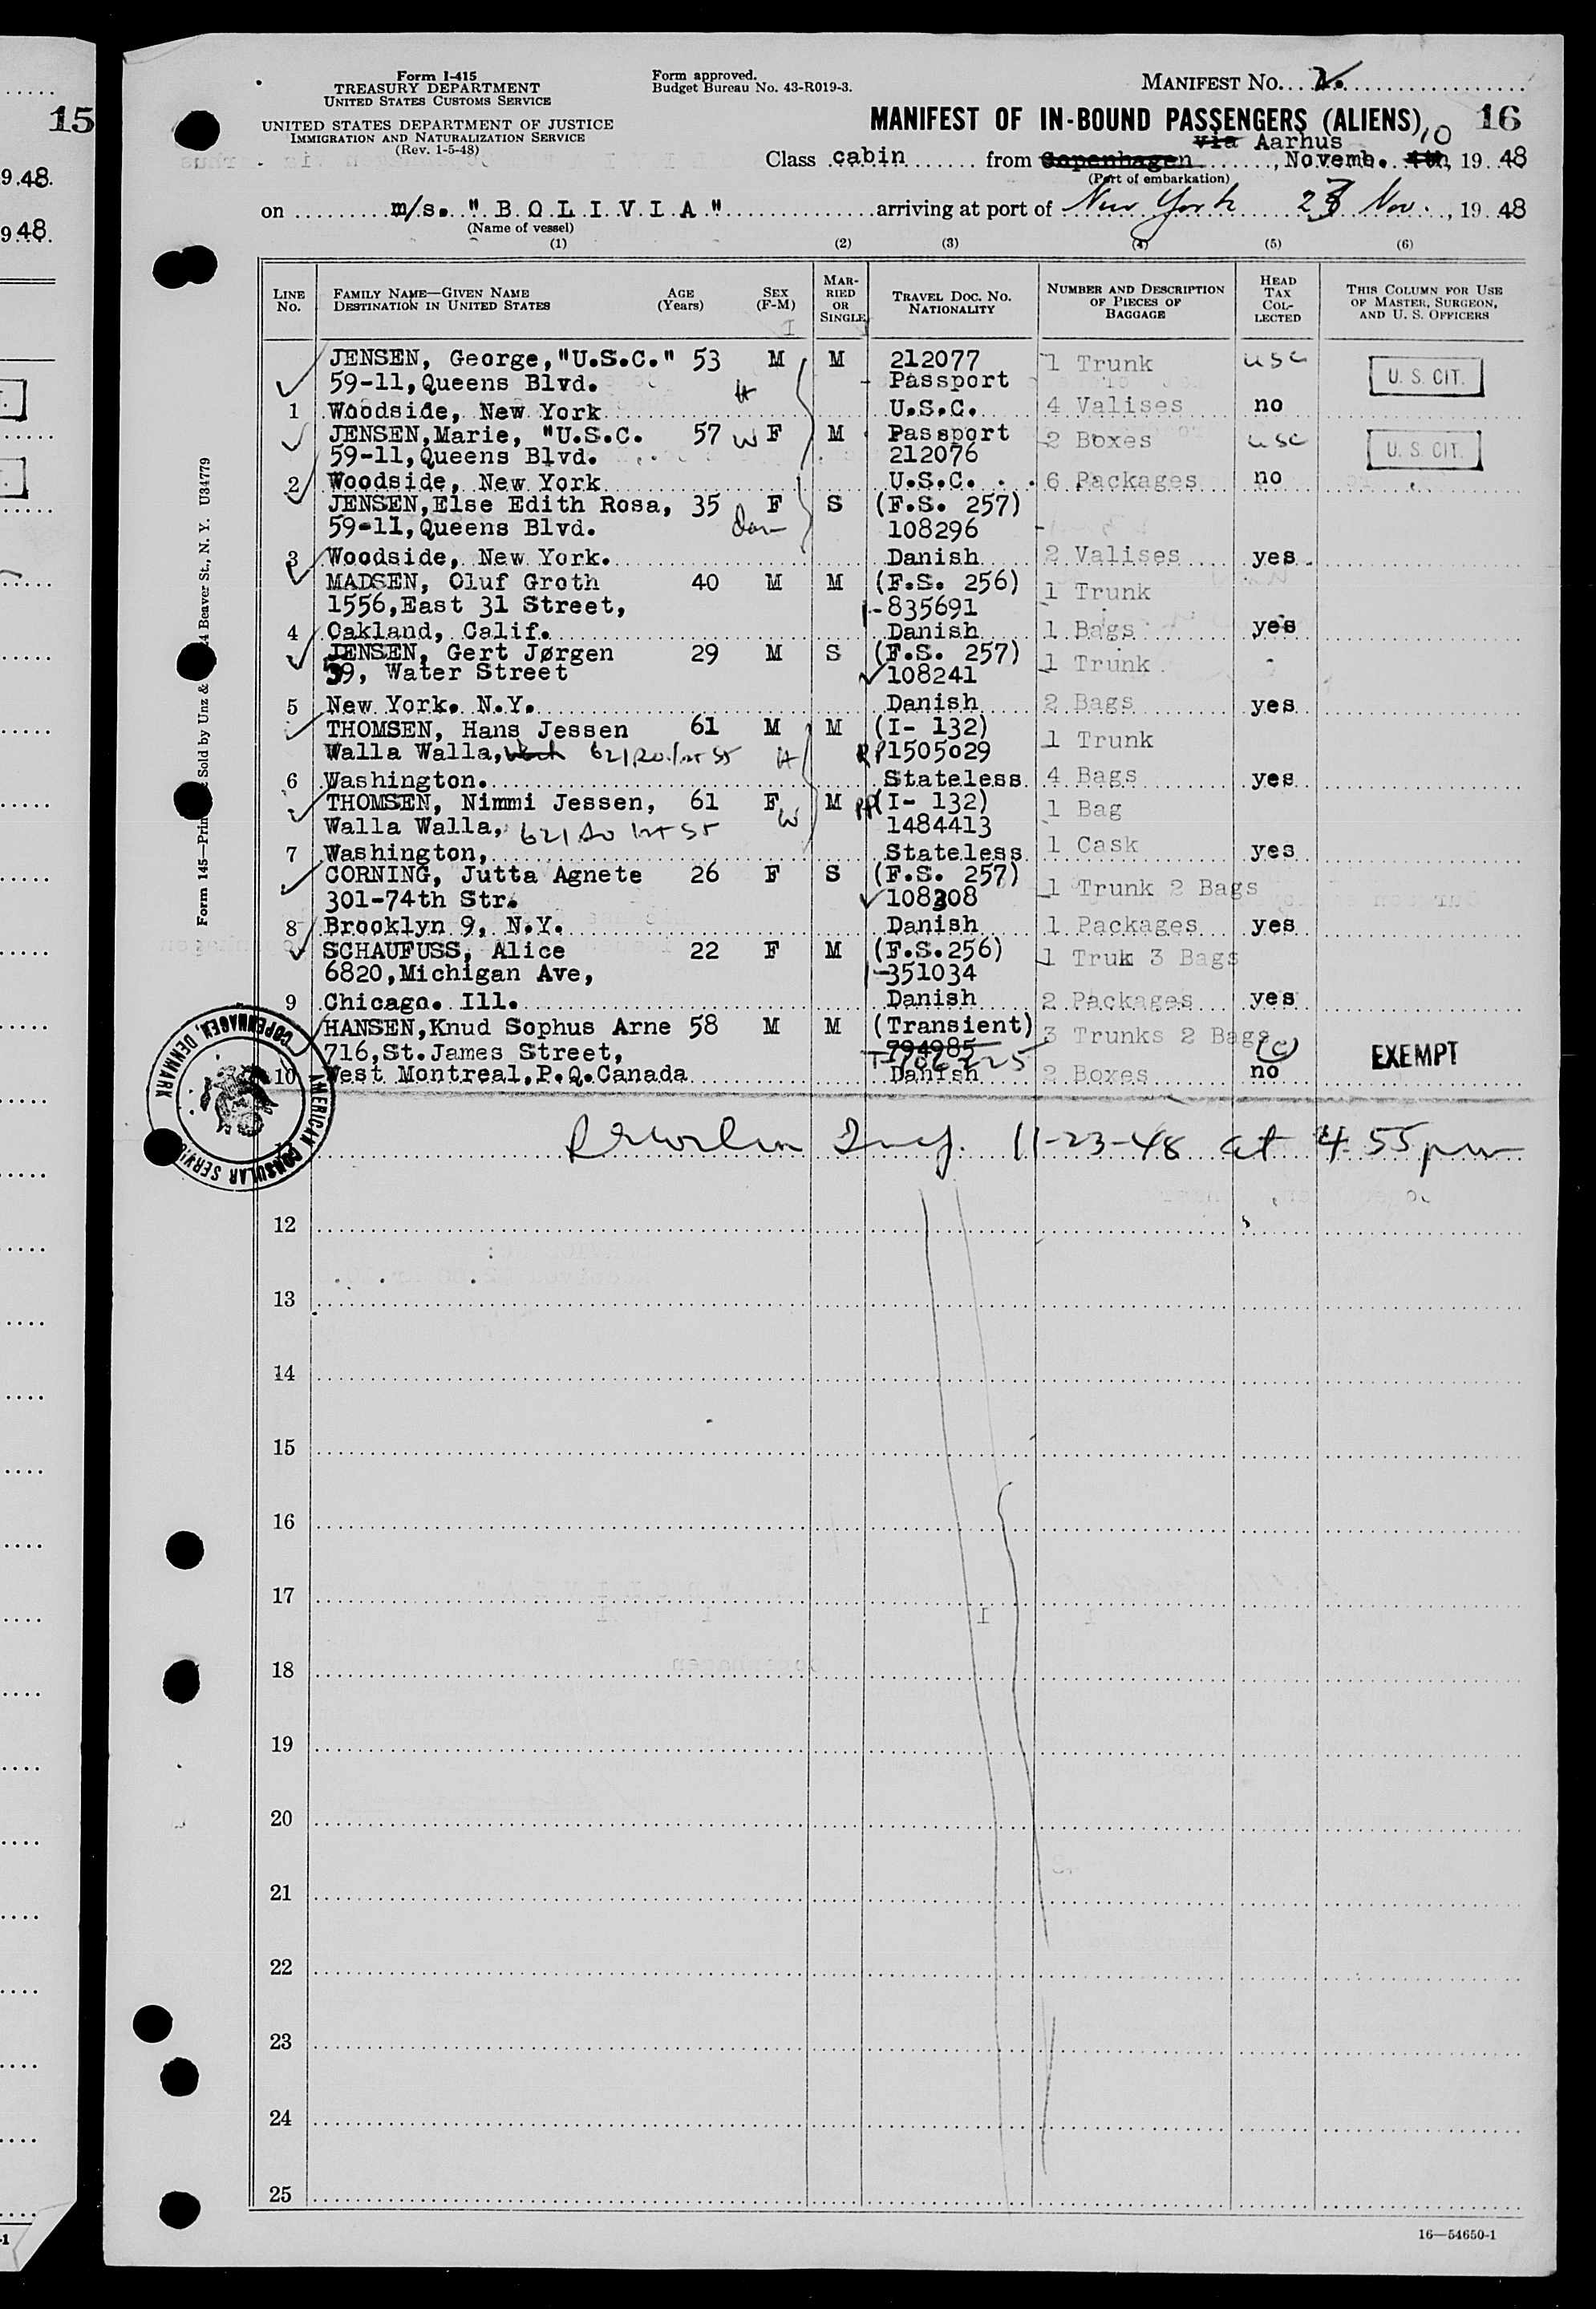 15
9.48.
948.
Form I-415
TREASURY DEPARTMENT
UNITED STATES CUSTOMS SERVICE
UNITED STATES DEPARTMENT OF JUSTICE
IMMIGRATION AND NATURALIZATION SERVICE
(Rev. 1-5-48)
Form approved.
Budget Bureau No. 43-R019-3.
MANIFEST NO.
MANIFEST OF IN-BOUND PASSENGERS (ALIENS) 16
via Aarhus 10
Class cabin from Copenhagen, Novemb. 4th, 19 48
(Port of embarkation)
on m/s. "BOLIVIA" arriving at port of New York 23 Nov., 19 48
(Name of vessel)
(1) (2) (3) (4) (5) (6)
LINE NO.
FAMILY NAME—GIVEN NAME
DESTINATION IN UNITED STATES
AGE (Years)
SEX (F-M)
MARRIED OR SINGLE
TRAVEL DOC. NO. NATIONALITY
NUMBER AND DESCRIPTION OF PIECES OF BAGGAGE
HEAD TAX COLLECTED
THIS COLUMN FOR USE OF MASTER, SURGEON, AND U. S. OFFICERS
JENSEN, George,"U.S.C." 53 M M 212077 1 Trunk usc U. S. CIT.
59-11,Queens Blvd. H Passport
1 Woodside, New York U.S.C. 4 Valises no
JENSEN,Marie, "U.S.C. 57 W F M Passport 2 Boxes usc U. S. CIT.
59-11,Queens Blvd. 212076
2 Woodside, New York U.S.C. 6 Packages no
JENSEN,Else Edith Rosa, 35 F S (F.S. 257)
59-11,Queens Blvd. Dau 108296
3 Woodside, New York. Danish 2 Valises yes
MADSEN, Oluf Groth 40 M M (F.S. 256) 1 Trunk
1556,East 31 Street, 835691
4 Oakland, Calif. Danish 1 Bags yes
JENSEN, Gert Jørgen 29 M S (F.S. 257) 1 Trunk
59, Water Street 108241
5 New York. N.Y. Danish 2 Bags yes
THOMSEN, Hans Jessen 61 M M (I- 132) 1 Trunk
Walla Walla, H RP 1505029
6 Washington. Stateless 4 Bags yes
THOMSEN, Nimmi Jessen, 61 F M RP (I- 132) 1 Bag
Walla Walla, W 1484413
7 Washington, Stateless 1 Cask yes
CORNING, Jutta Agnete 26 F S (F.S. 257) 1 Trunk 2 Bags
301-74th Str. 108308
8 Brooklyn 9, N.Y. Danish 1 Packages yes
SCHAUFUSS, Alice 22 F M (F.S.256) 1 Truk 3 Bags
6820,Michigan Ave, 351034
9 Chicago. Ill. Danish 2 Packages yes
HANSEN,Knud Sophus Arne 58 M M (Transient) 3 Trunks 2 Bags
716,St.James Street, 794985 EXEMPT
10 West Montreal,P.Q.Canada Danish 2 Boxes no
11-23-48 at 4.55 pm
12
13
14
15
16
17
18
19
20
21
22
23
24
25
16—54650-1
AMERICAN CONSULAR SERVICE COPENHAGEN, DENMARK
Form 145—Prin Sold by Unz & 4 Beaver St., N. Y. U34779